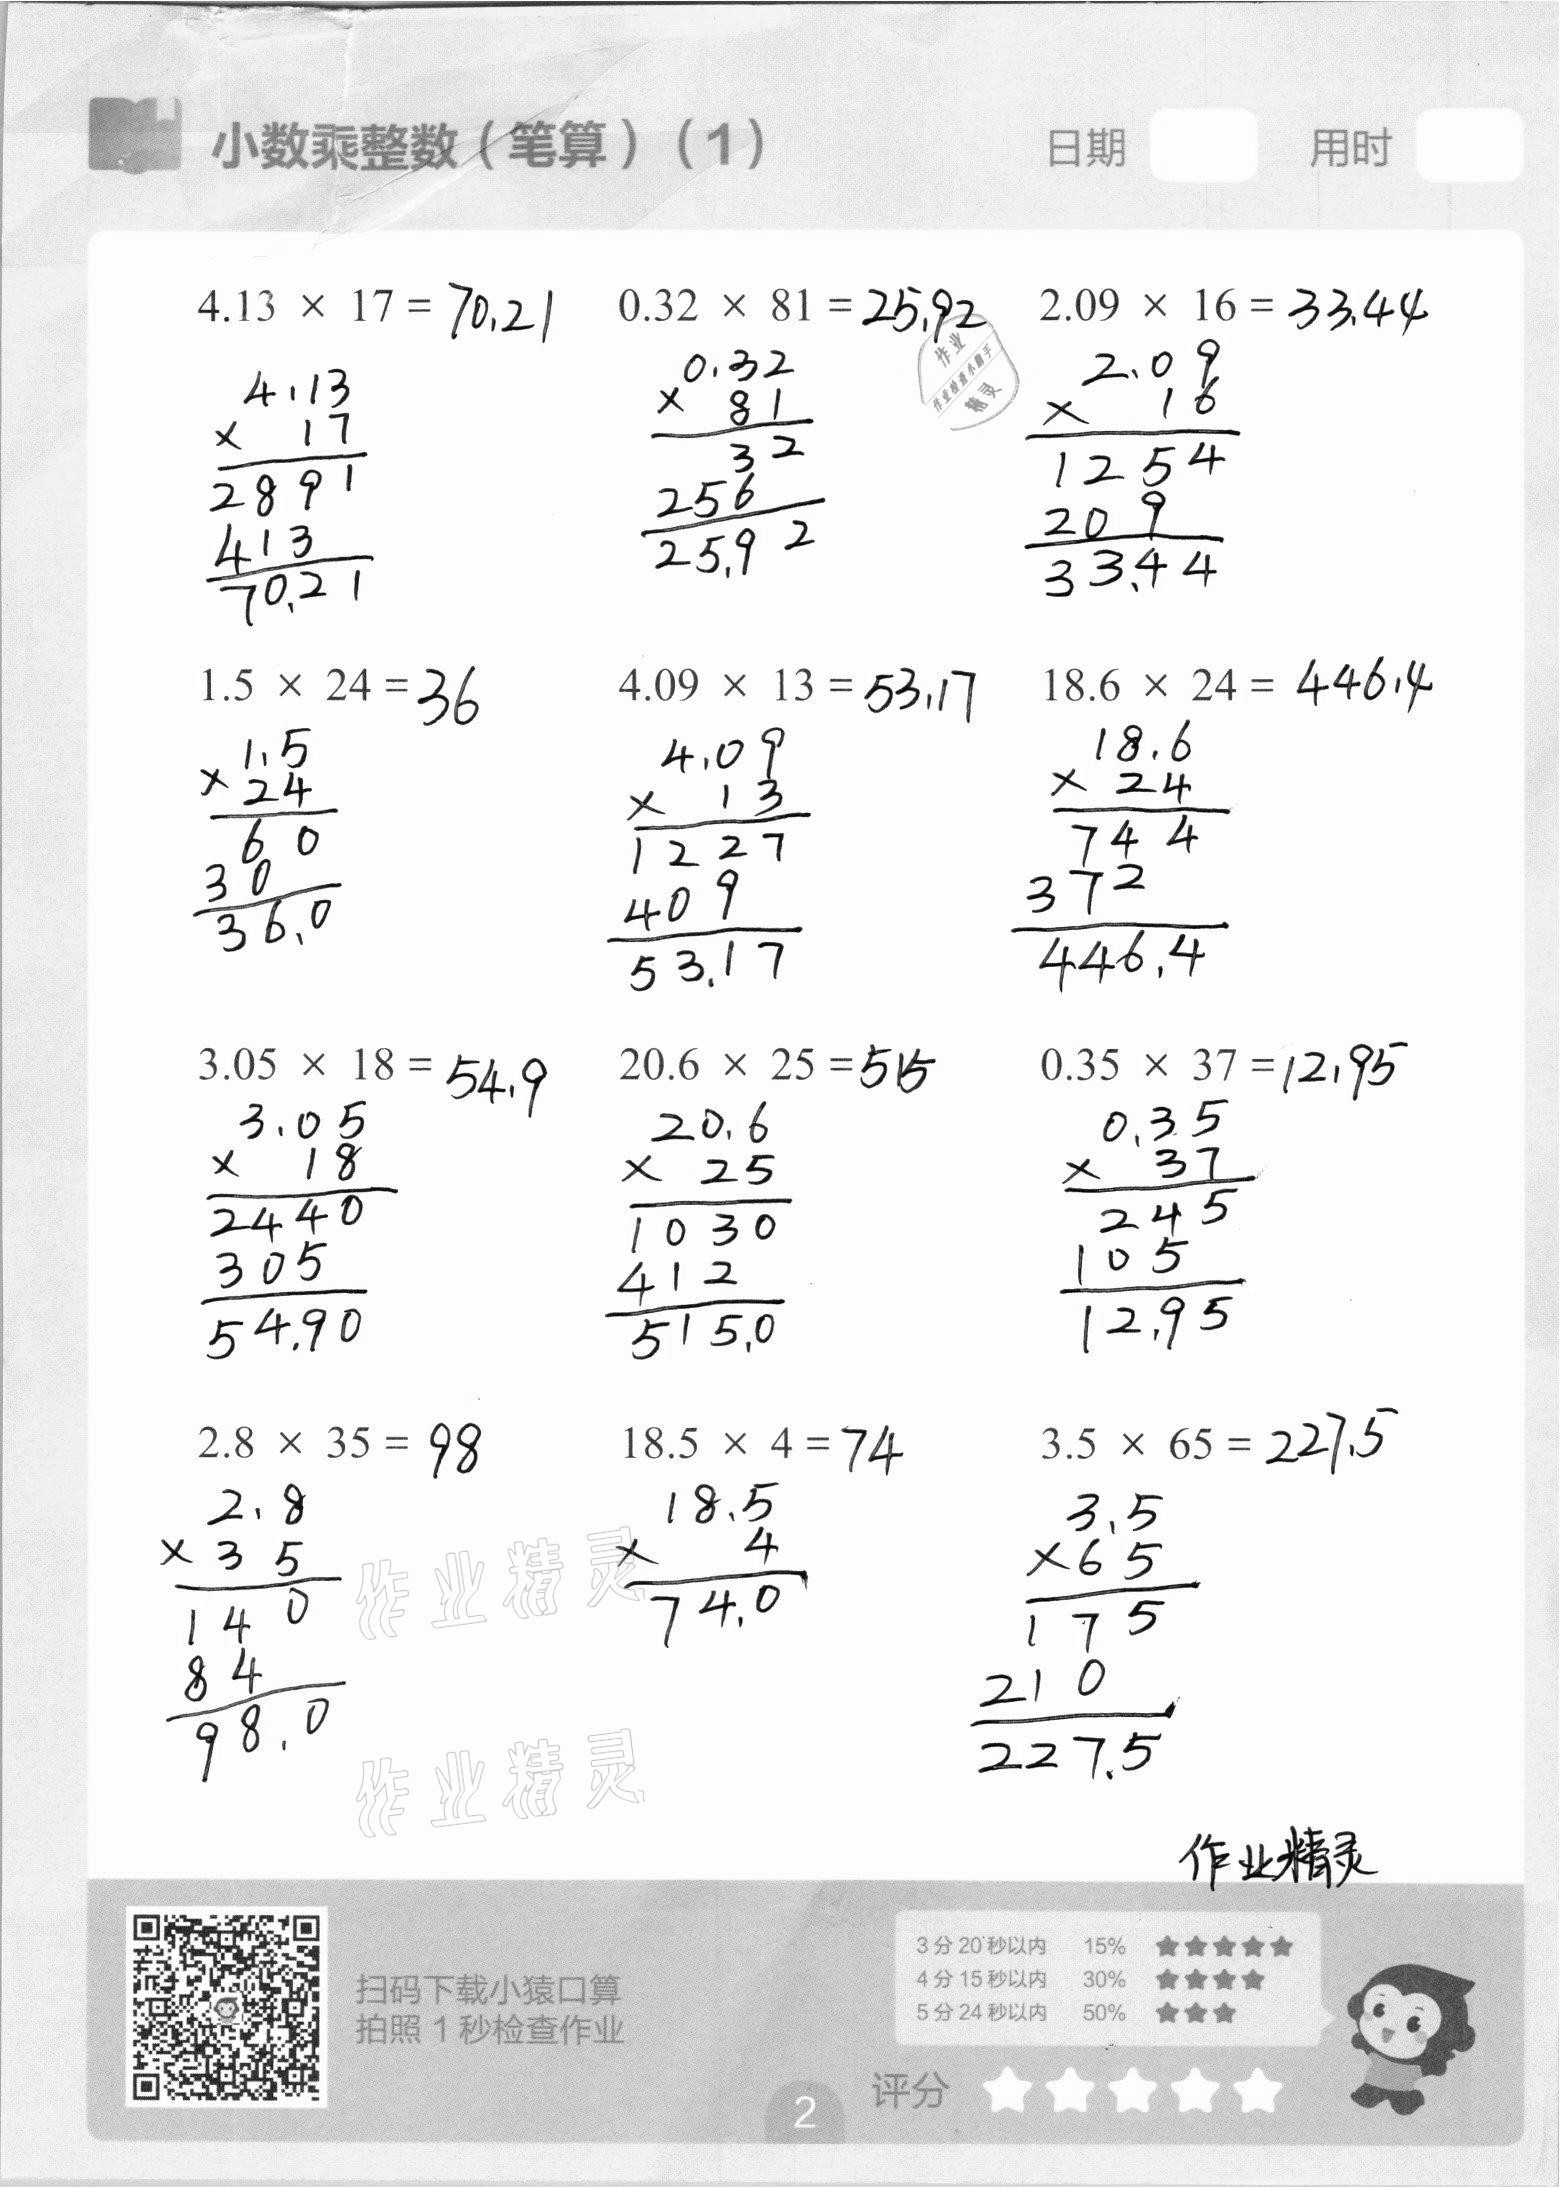 小数乘整数（笔算）（1） 日期 用时
4.13 × 17 = 70.21 0.32 × 81 = 25.92 2.09 × 16 = 33.44
4.13 0.32 2.09
× 17 × 81 × 16
2891 32 1254
413 256 209
70.21 25.92 33.44
作业
作业检查小助手
精灵
1.5 × 24 = 36 4.09 × 13 = 53.17 18.6 × 24 = 446.4
1.5 4.09 18.6
× 24 × 13 × 24
60 1227 744
30 409 372
36.0 53.17 446.4
3.05 × 18 = 54.9 20.6 × 25 = 515 0.35 × 37 = 12.95
3.05 20.6 0.35
× 18 × 25 × 37
2440 1030 245
305 412 105
54.90 515.0 12.95
2.8 × 35 = 98 18.5 × 4 = 74 3.5 × 65 = 227.5
2.8 18.5 3.5
× 35 × 4 × 65
140 74.0 175
84 210
98.0 227.5
作业精灵
作业精灵
作业精灵
3分20秒以内 15% ★★★★★
4分15秒以内 30% ★★★★
5分24秒以内 50% ★★★
扫码下载小猿口算
拍照1秒检查作业
评分
2